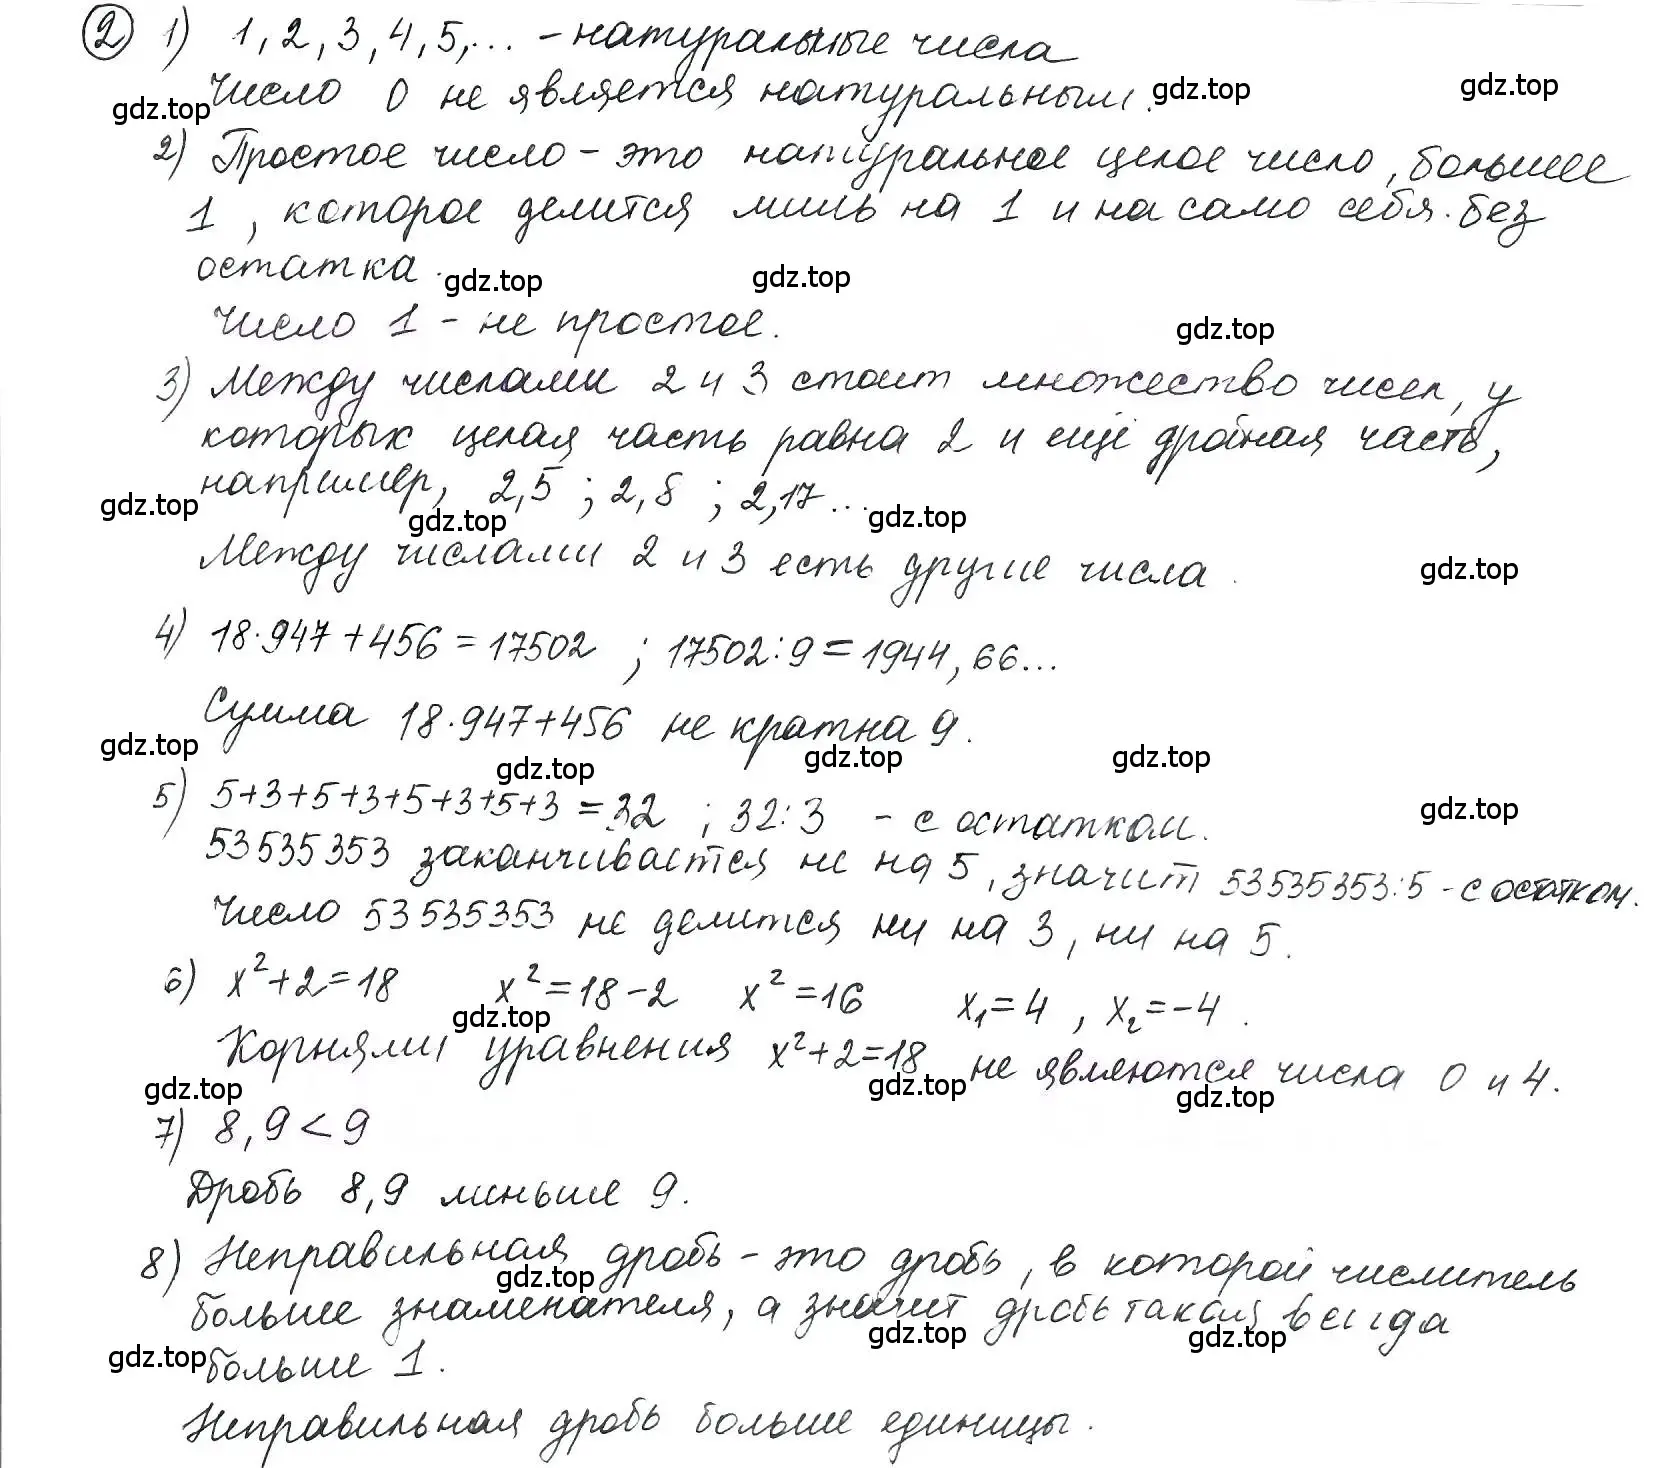 2 1) 1, 2, 3, 4, 5, ... - натуральные числа
Число 0 не является натуральным.
gdz.top gdz.top gdz.top
2) Простое число - это натуральное целое число, большее
1, которое делится лишь на 1 и на само себя без
остатка.
gdz.top gdz.top
Число 1 - не простое.
gdz.top
3) Между числами 2 и 3 стоит множество чисел, у
которых целая часть равна 2 и ещё дробная часть,
например, 2,5 ; 2,8 ; 2,17 ...
gdz.top gdz.top gdz.top
Между числами 2 и 3 есть другие числа.
gdz.top
4) 18·947+456=17502 ; 17502:9=1944,66...
Сумма 18·947+456 не кратна 9.
gdz.top gdz.top gdz.top gdz.top
5) 5+3+5+3+5+3+5+3=32 ; 32:3 - с остатком.
gdz.top
53535353 заканчивается не на 5, значит 53535353:5 - с остатком.
Число 53535353 не делится ни на 3, ни на 5.
6) x²+2=18 x²=18-2 x²=16 x₁=4, x₂=-4.
gdz.top
Корнями уравнения x²+2=18 не являются числа 0 и 4.
gdz.top gdz.top gdz.top
7) 8,9<9
Дробь 8,9 меньше 9.
8) Неправильная дробь - это дробь, в которой числитель
gdz.top
больше знаменателя, а значит дробь такая всегда
gdz.top gdz.top
gdz.top больше 1.
Неправильная дробь больше единицы.